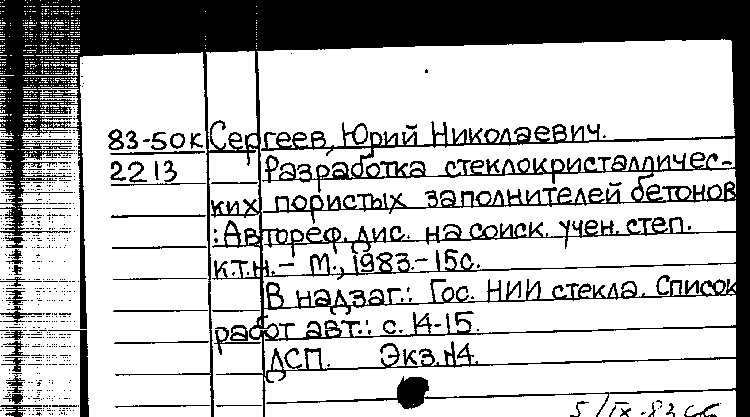 83-50к Сергеев, Юрий Николаевич.
2213 Разработка стеклокристалличес-
ких пористых заполнителей бетонов
: Автореф. дис. на соиск. учен. степ.
к.т.н. - М., 1983. - 15с.
В надзаг.: Гос. НИИ стекла. Список
работ авт.: с. 14-15.
ДСП. Экз.№4.
5/IX-83